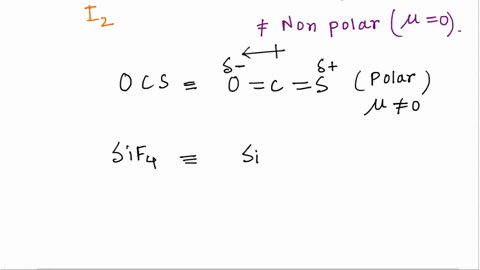 I₂
≠ Non polar (μ = 0).
δ- δ+
OCS ≡ O = C = S (Polar)
μ ≠ 0
SiF₄ ≡ Si